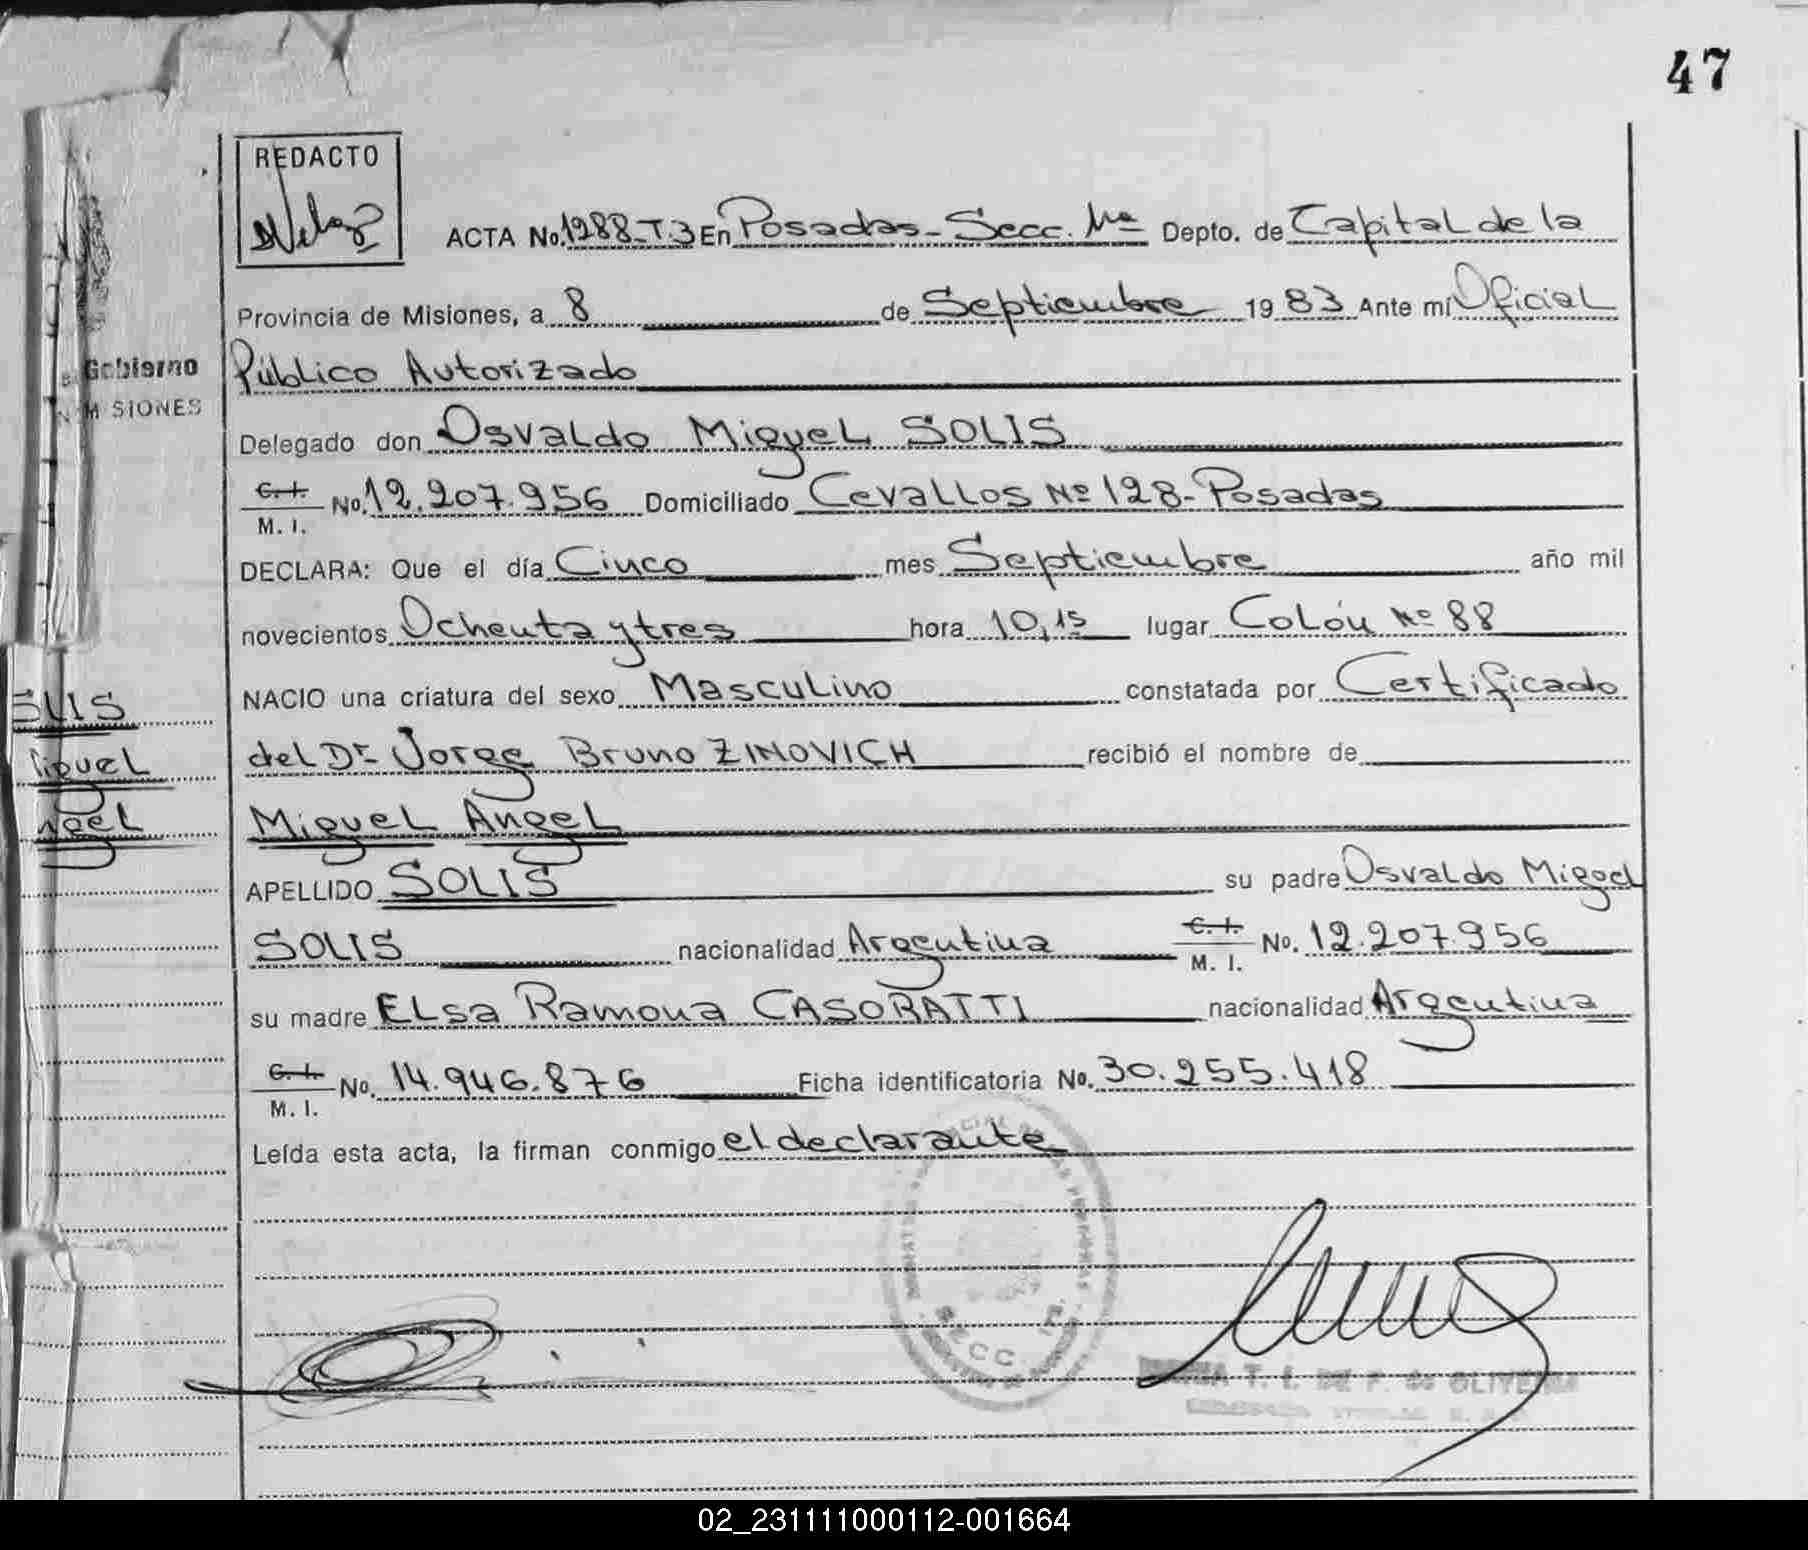 47
REDACTO
ACTA No. 1288-T.3 En Posadas - Secc. 1ra Depto. de Capital de la
Provincia de Misiones, a 8 de Septiembre 1983 Ante mí Oficial
Gobierno
Público Autorizado
M SIONES
Delegado don Osvaldo Miguel SOLIS
C. I. No. 12.207.956 Domiciliado Cevallos Nº 128 - Posadas
M. I.
DECLARA: Que el día Cinco mes Septiembre año mil
novecientos Ochenta y tres hora 10,15 lugar Colón Nº 88
NACIO una criatura del sexo Masculino constatada por Certificado
del Dr. Jorge Bruno ZINOVICH recibió el nombre de
Miguel Angel
APELLIDO SOLIS su padre Osvaldo Miguel
SOLIS nacionalidad Argentina C. I. No. 12.207.956
M. I.
su madre Elsa Ramona CASORATTI nacionalidad Argentina
C. I. No. 14.946.876 Ficha identificatoria No. 30.255.418
M. I.
Leída esta acta, la firman conmigo el declarante
SECC. 1ra.
T. I. DE F. de OLIVEIRA
02_231111000112-001664